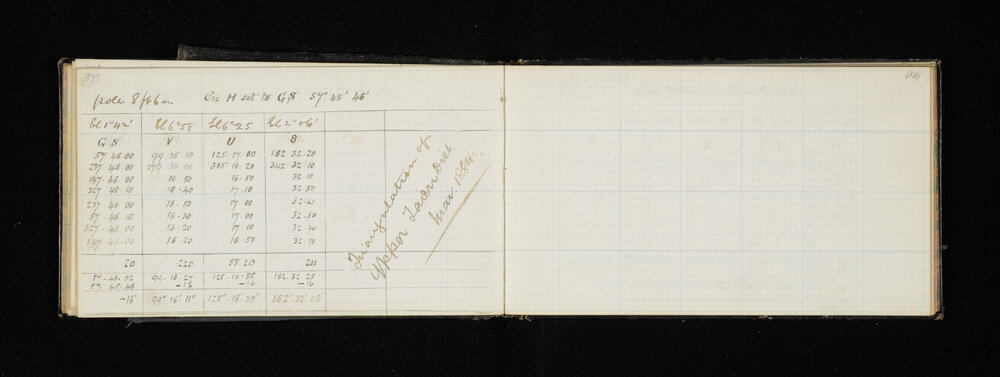 (57)
pole 8 ft 6 in On H set to G.S. 57° 45' 46"
El 1° 42' El 6° 58' El 6° 25 El 2° 06'
G S V U S
57.46.00 99.16.10 125.17.00 162.32.20
237.46.00 279.16.00 305.16.20 342.32.10
147.46.00 16.50 16.50 32.10
327.46.10 16.40 17.10 32.50
237.46.00 16.50 17.00 32.40
57.46.10 16.30 17.00 32.50
327.46.00 16.20 17.10 32.20
147.46.00 16.20 16.50 32.10
20 220 55.20 200
57.46.02 99.16.27 125.16.55 162.32.25
57.45.46 -16 -16 -16
-16" 99° 16' 11" 125° 16' 39" 162° 32' 09"
Triangulation of
Upper Taieri Dist.
Mar. 1884.
(58)